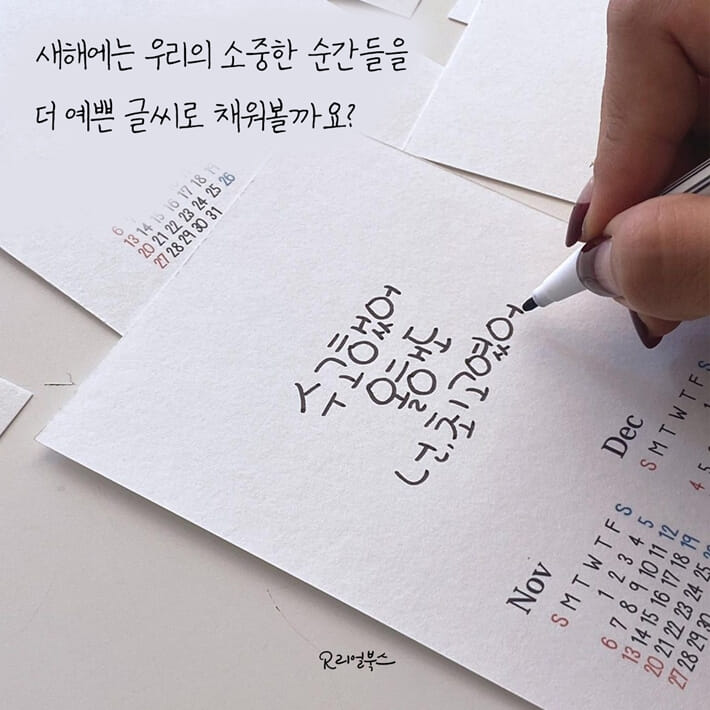 새해에는 우리의 소중한 순간들을
더 예쁜 글씨로 채워볼까요?
6 13 14 15 16 17 18 19
20 21 22 23 24 25 26
27 28 29 30 31
수고했어
올해도
넌, 최고였어
Dec
S M T W T F S
4 5
Nov
S M T W T F S
1 2 3 4 5
6 7 8 9 10 11 12
13 14 15 16 17 18 19
20 21 22 23 24 25
27 28 29 30
리얼북스